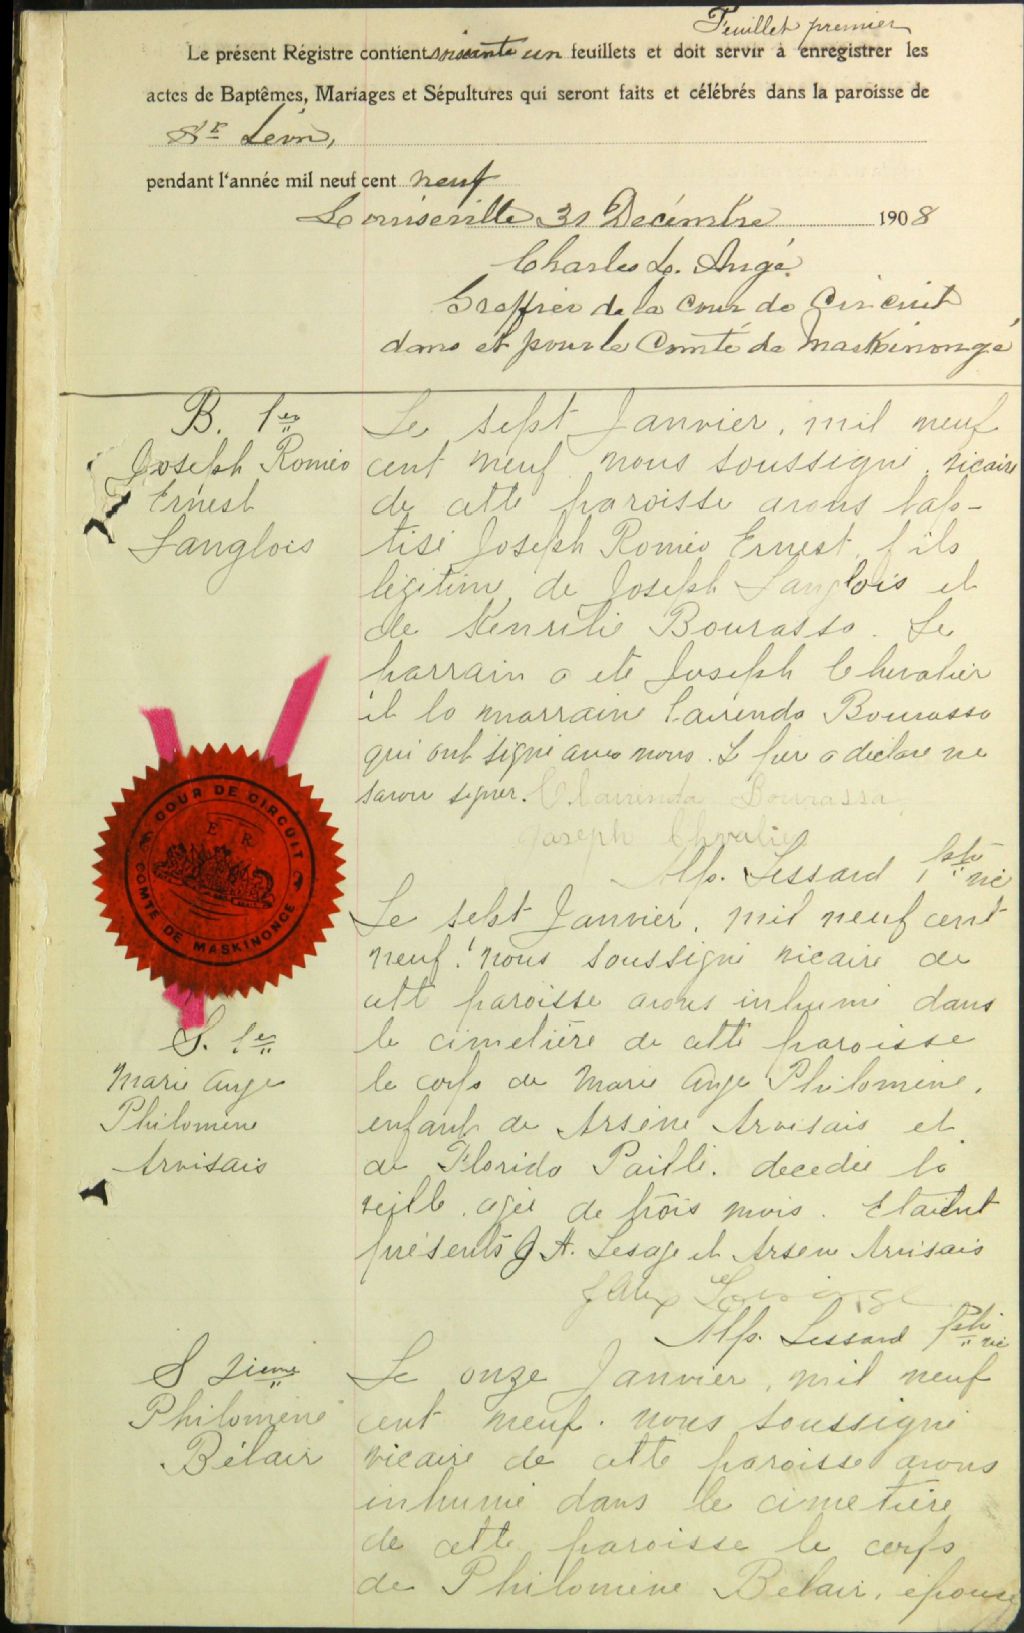 Feuillet premier
Le présent Régistre contient soixante un feuillets et doit servir à enregistrer les
actes de Baptêmes, Mariages et Sépultures qui seront faits et célébrés dans la paroisse de
St Léon,
pendant l'année mil neuf cent neuf
Louiseville 31 Décembre 1908
Charles L. Augé
Greffier de la Cour de Circuit
dans et pour le Comté de Maskinongé
B. 1er
Joseph Roméo
Ernest
Langlois
Le sept Janvier, mil neuf
cent neuf nous soussigné, vicaire
de cette paroisse avons bap-
tisé Joseph Roméo Ernest, fils
légitime de Joseph Langlois et
de Bourassa. Le
parrain a été Joseph Chevalier
et la marraine Bourassa
qui ont signé avec nous. Le père a déclaré ne
savoir signer. Clarinda Bourassa
Joseph Chevalier
Alp. Lessard ptre vic
COUR DE CIRCUIT
E R
COMTÉ DE MASKINONGE
S. 1er
Marie Ange
Philomène
Arvisais
Le sept Janvier, mil neuf cent
neuf, nous soussigné vicaire de
cette paroisse avons inhumé dans
le cimetière de cette paroisse
le corps de Marie Ange Philomène,
enfant de Arsène Arvisais et
de Florida Paillé. décédée la
veille, agée de trois mois. Etaient
présents J A. Lesage et Arsene Arvisais
Alp. Lessard ptre vic
S 2ieme
Philomène
Bélair
Le onze Janvier, mil neuf
cent neuf. nous soussigné
vicaire de cette paroisse avons
inhumé dans le cimetière
de cette paroisse le corps
de Philomène Bélair, épouse